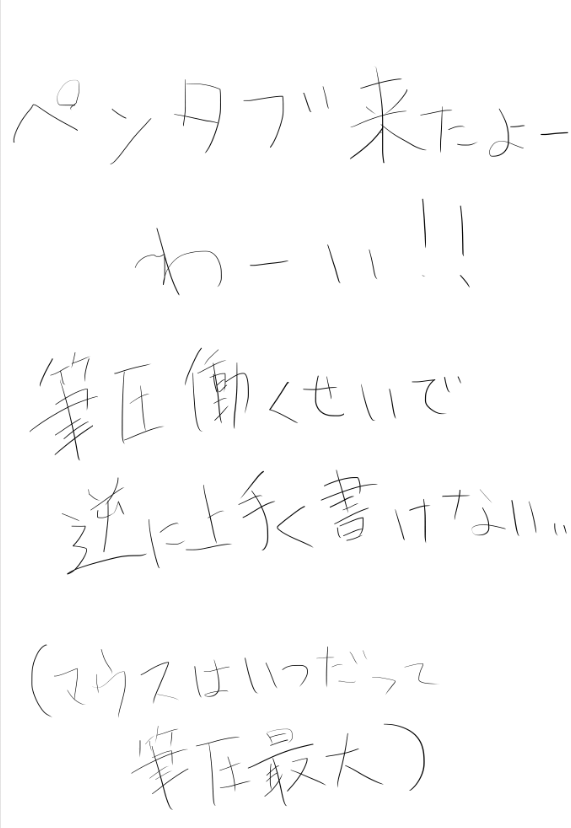 ペンタブ来たよー
わーい!!
筆圧働くせいで
逆に上手く書けない..
(マウスはいつだって
筆圧最大)